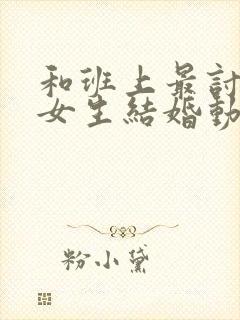 和班上最討
女生結婚動
粉小黛